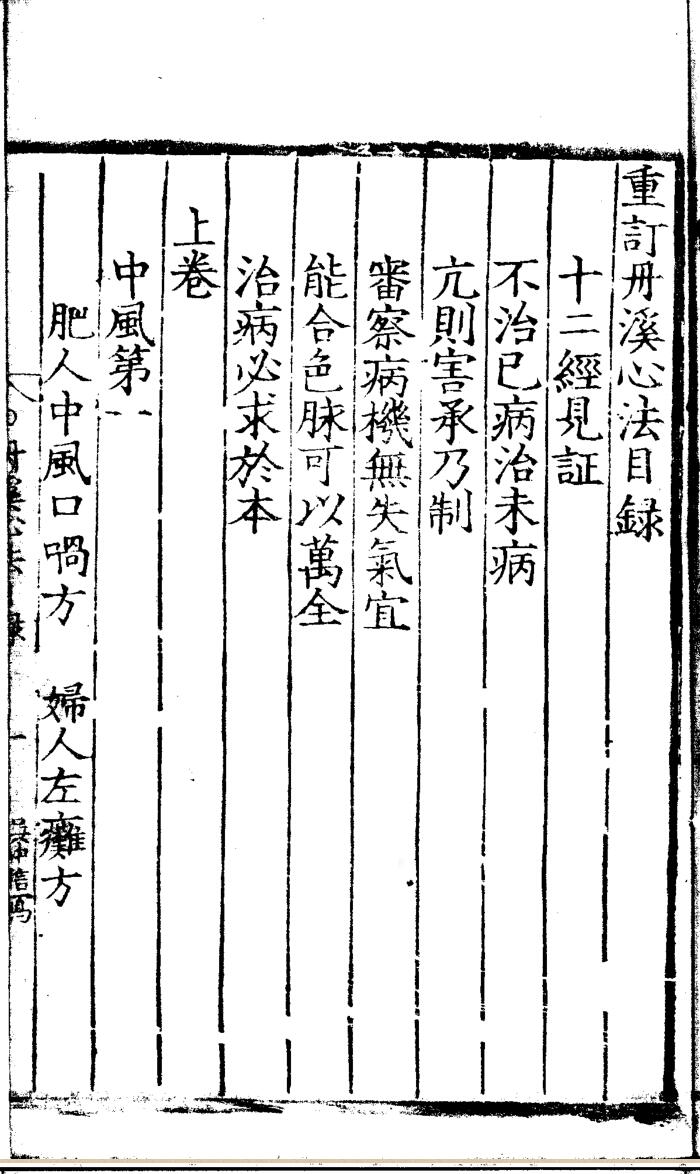 重訂丹溪心法目錄
十二經見証
不治已病治未病
亢則害承乃制
審察病機無失氣宜
能合色脉可以萬全
治病必求於本
上卷
中風第一
肥人中風口喎方 婦人左癱方